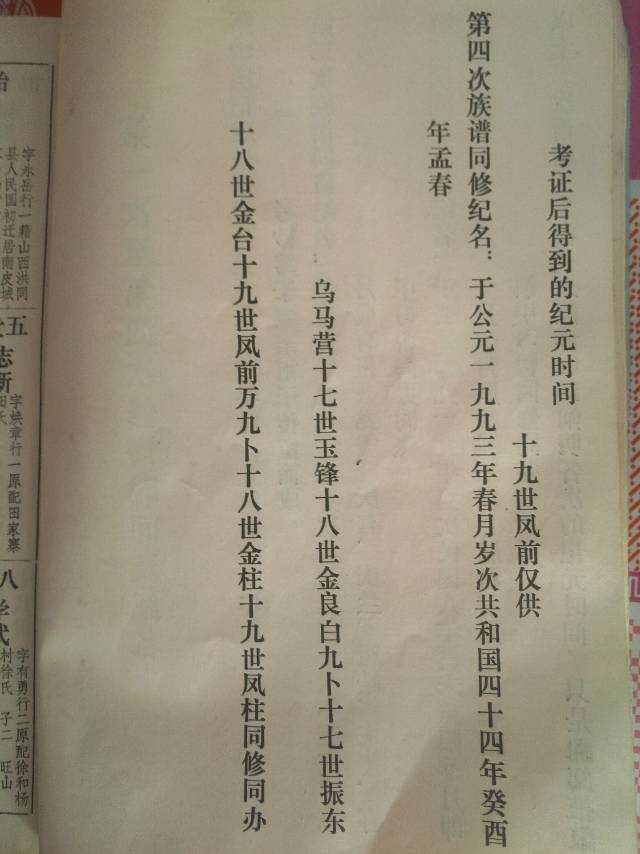 考证后得到的纪元时间
十九世凤前仅供
第四次族谱同修纪名：于公元一九九三年春月岁次共和国四十四年癸酉
年孟春
乌马营十七世玉锋十八世金良白九卜十七世振东
十八世金台十九世凤前万九卜十八世金柱十九世风柱同修同办
字永岳行一籍山西洪同
县人民国初迁居南皮城
五
志新
字焕章行一原配田家寨
田氏
八
字有勇行二原配徐和杨
村徐氏 子二 旺山